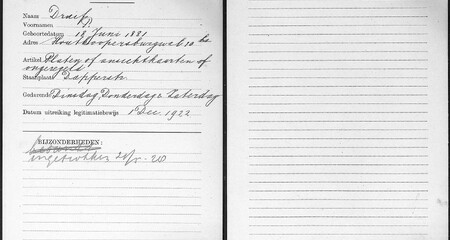 Naam Draif
Voornamen J.
Geboortedatum 18 Juni 1881
Adres Houtkoopersburgwal 10 hs
Artikel Platen of ansichtkaarten of
ongeregeld
Staanplaats Dapperstr.
Gedurende Dinsdag, Donderdag & Zaterdag
Datum uitreiking legitimatiebewijs 1 Dec. 1922
BIJZONDERHEDEN:
ingetrokken